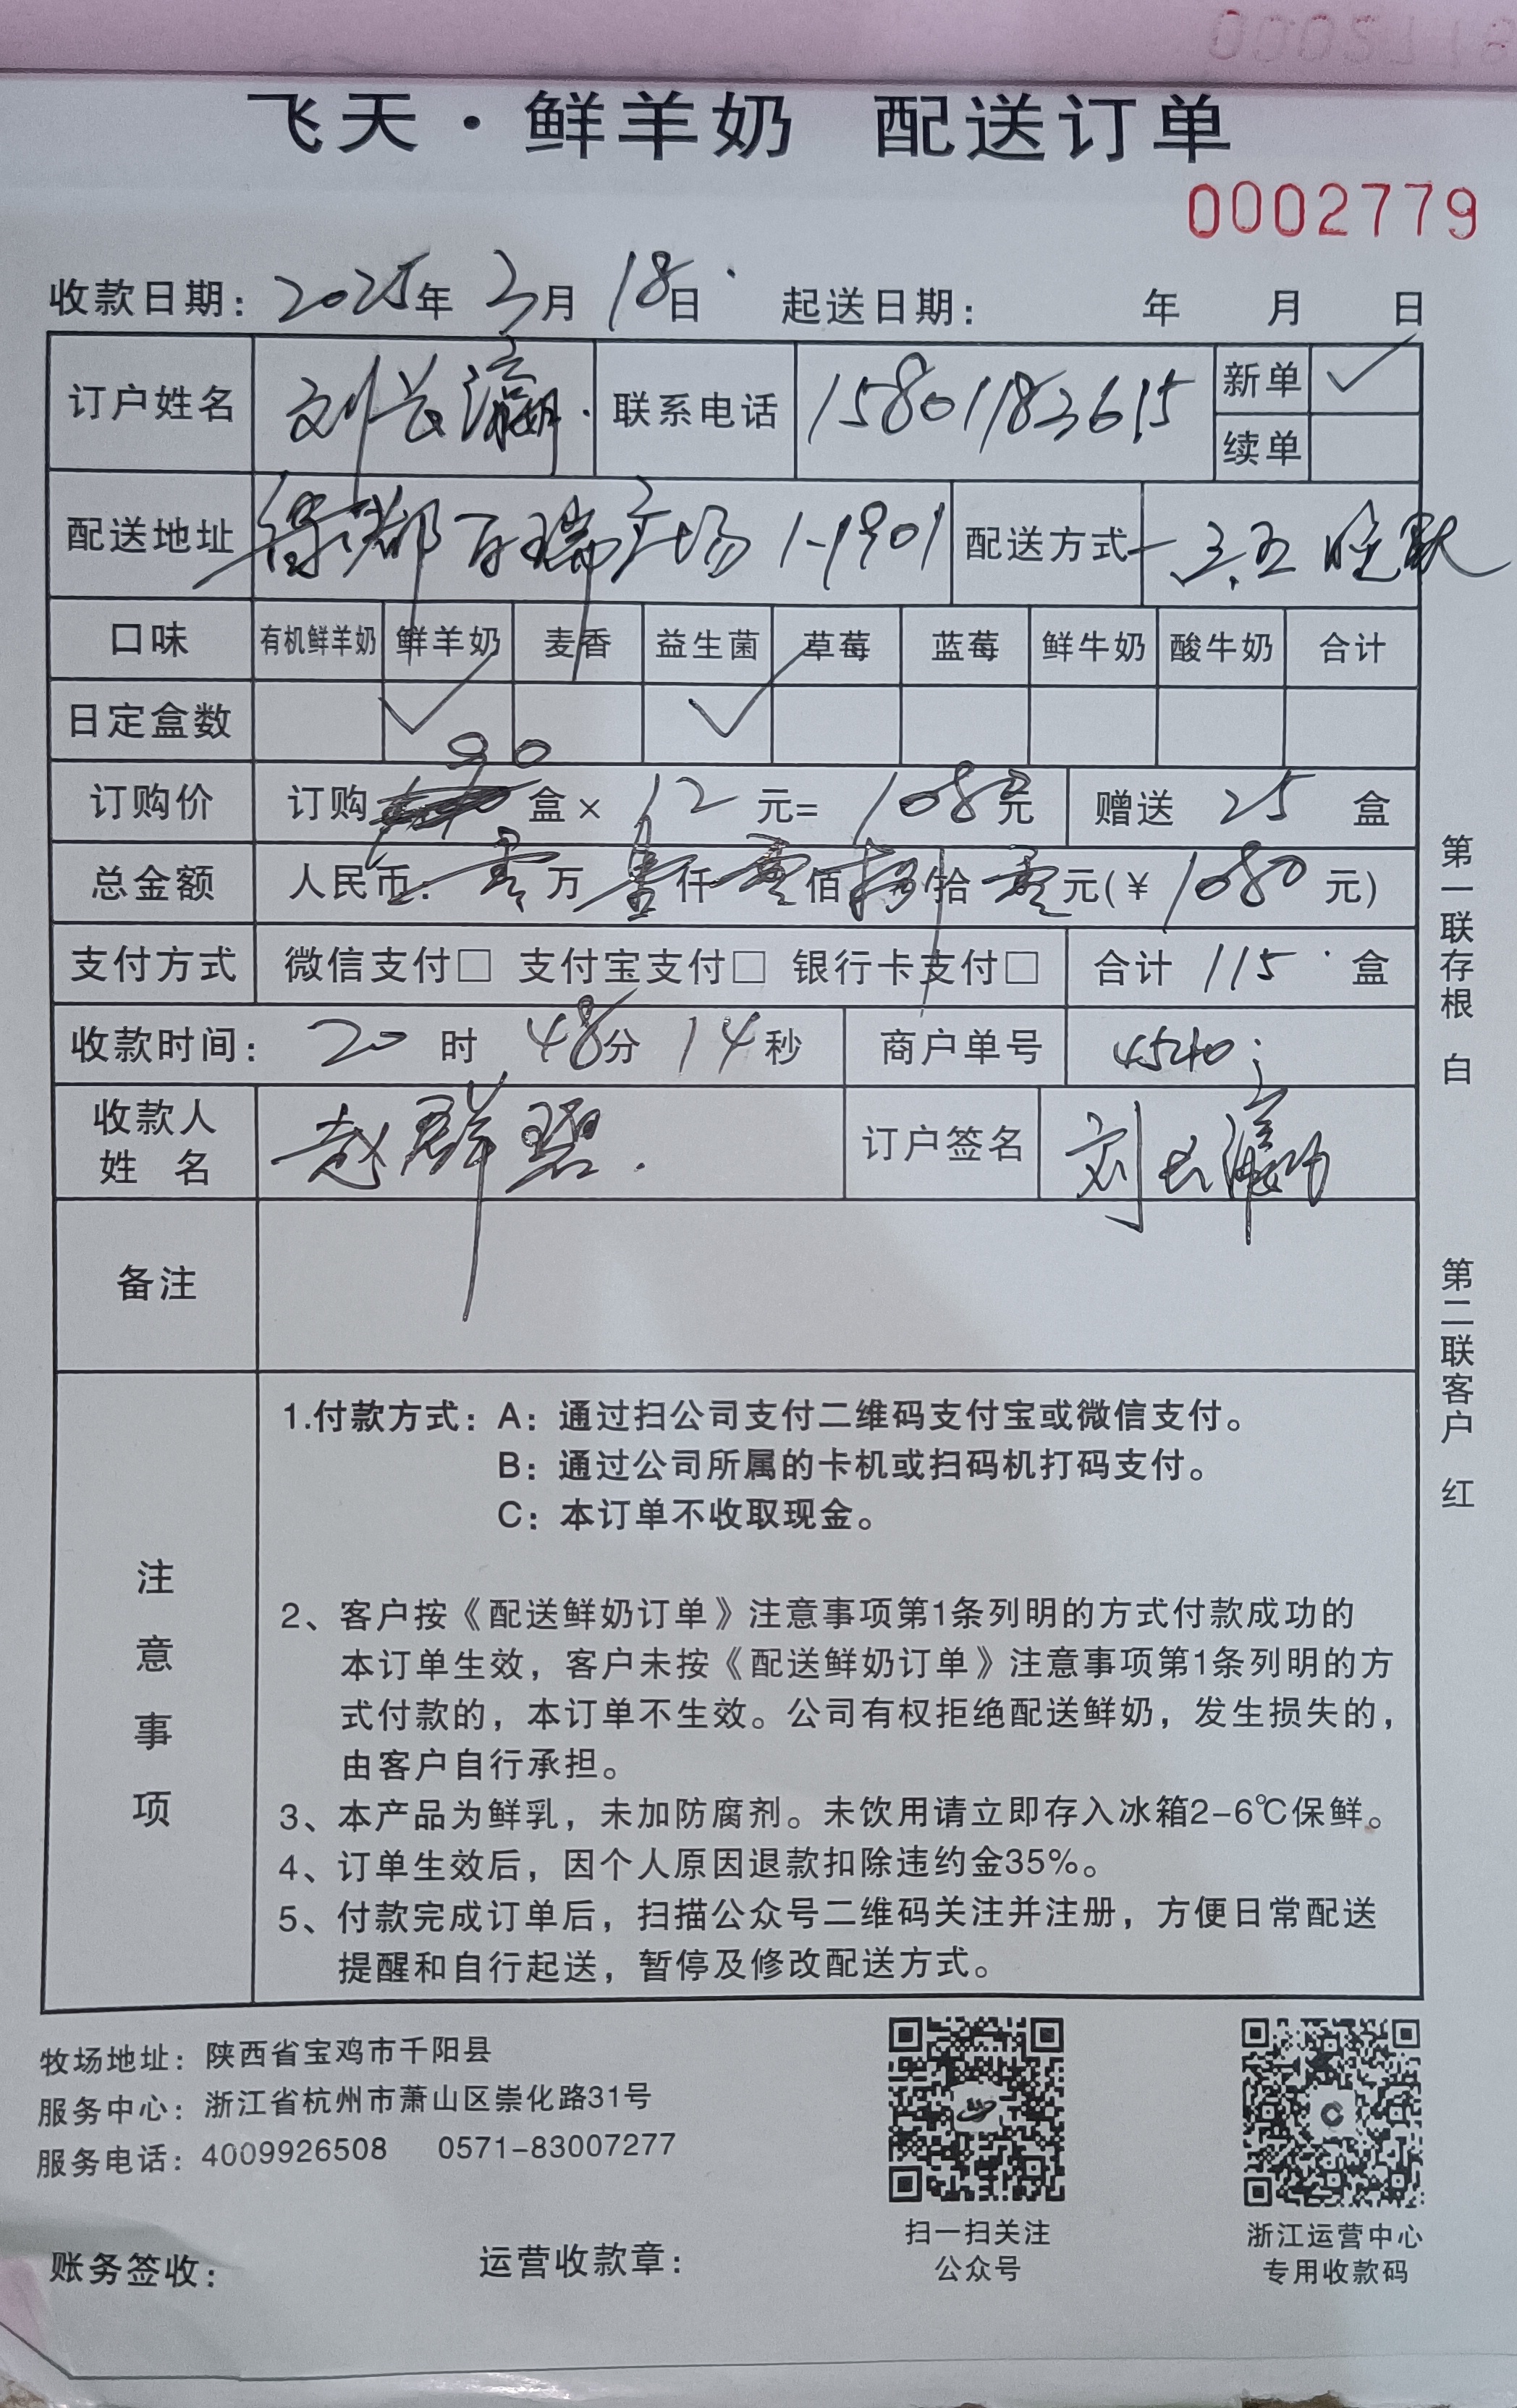 飞天·鲜羊奶 配送订单
0002779
收款日期：2025年 3月 18日 起送日期： 年 月 日
订户姓名 刘长瀛 联系电话 15801183615 新单 ✓
续单
配送地址 绿都百瑞广场 1-1901 配送方式 一三.五 晚默
口味 有机鲜羊奶 鲜羊奶 麦香 益生菌 草莓 蓝莓 鲜牛奶 酸牛奶 合计
日定盒数 ✓ ✓
订购价 订购 90 盒× 12 元= 1080 元 赠送 25 盒
总金额 人民币：零万壹仟零佰捌拾零元(¥1080元)
支付方式 微信支付□ 支付宝支付□ 银行卡支付□ 合计 115 盒
收款时间： 20 时 48分 14秒 商户单号 4540
收款人姓名 赵群碧. 订户签名 刘长瀛
备注
注意事项
1.付款方式：A：通过扫公司支付二维码支付宝或微信支付。
B：通过公司所属的卡机或扫码机打码支付。
C：本订单不收取现金。
2、客户按《配送鲜奶订单》注意事项第1条列明的方式付款成功的
本订单生效，客户未按《配送鲜奶订单》注意事项第1条列明的方
式付款的，本订单不生效。公司有权拒绝配送鲜奶，发生损失的，
由客户自行承担。
3、本产品为鲜乳，未加防腐剂。未饮用请立即存入冰箱2-6℃保鲜。
4、订单生效后，因个人原因退款扣除违约金35%。
5、付款完成订单后，扫描公众号二维码关注并注册，方便日常配送
提醒和自行起送，暂停及修改配送方式。
第一联存根 白
第二联客户 红
牧场地址：陕西省宝鸡市千阳县
服务中心：浙江省杭州市萧山区崇化路31号
服务电话：4009926508 0571-83007277
扫一扫关注
公众号
浙江运营中心
专用收款码
账务签收： 运营收款章：